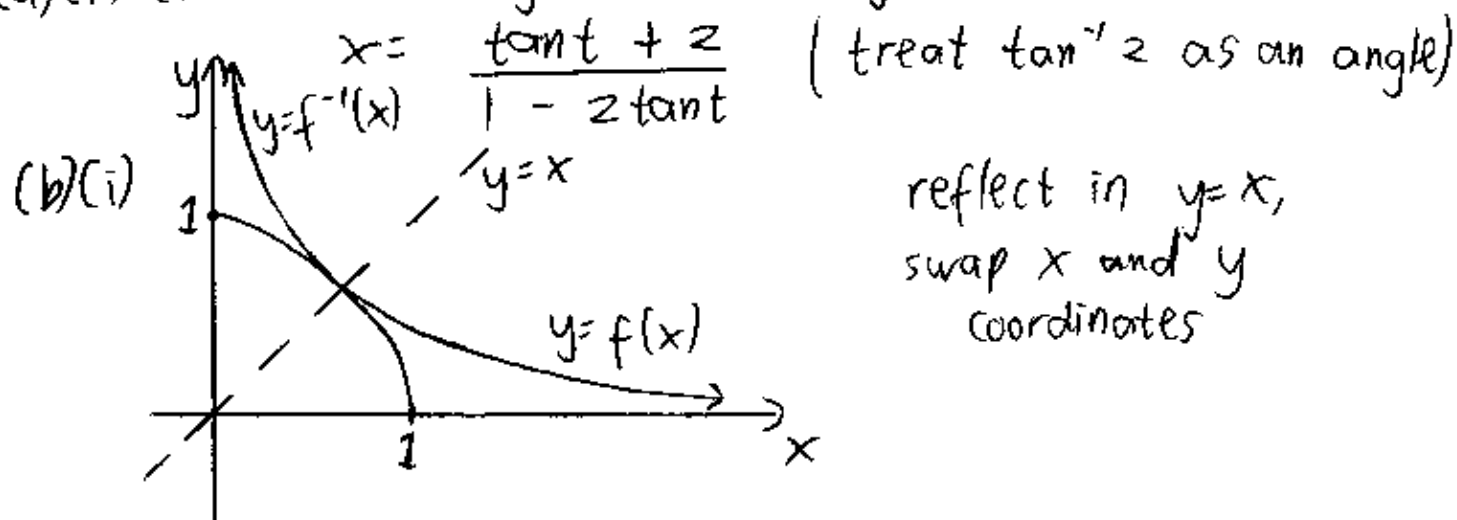 x = (tan t + 2) / (1 - 2 tan t) (treat tan⁻¹ 2 as an angle)
y
y=f⁻¹(x)
y=x
(b)(i)
1
reflect in y=x,
swap x and y
coordinates
y=f(x)
1
x